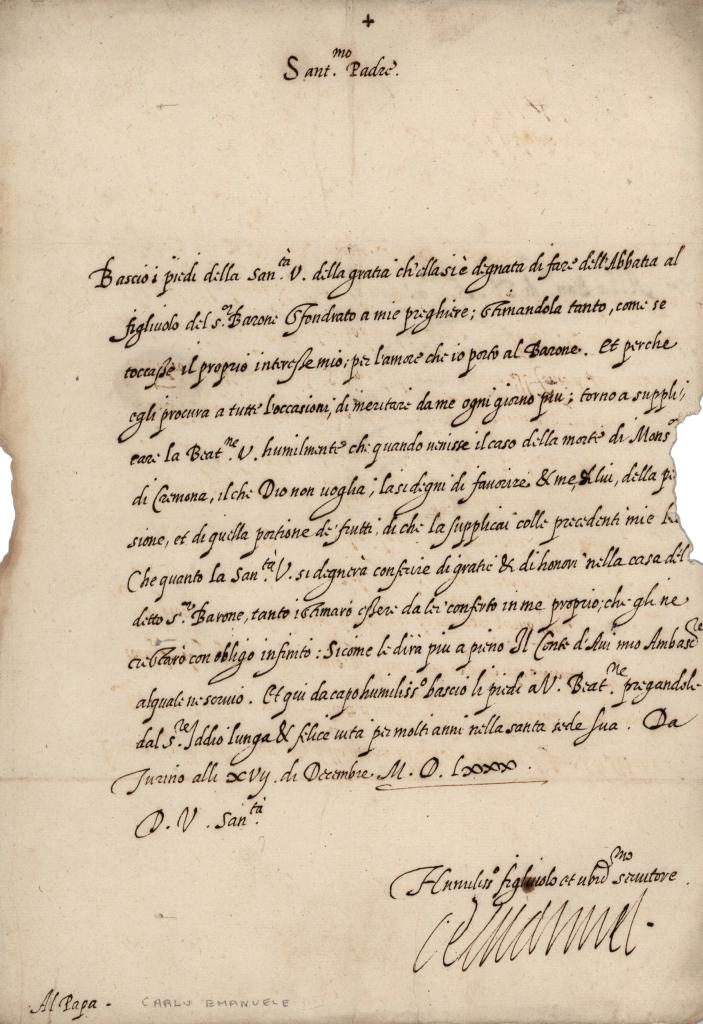 +
Sant.mo Padre.
Bascio i piedi della San.tà V. della gratia ch'ella si è degnata di fare dell'Abbatia al
figliuolo del s.or Barone Sfondrato a mie preghiere; stimandola tanto, come se
toccasse il proprio interesse mio; per l'amore che io porto al Barone. Et perche
egli procura a tutte l'occasioni, di meritare da me ogni giorno piu; torno a suppli,
care la Beat.ne V. humilmente che quando venisse il caso della morte di Mons.or
di Cremona, il che Dio non voglia, la si degni di favorire & me, & lui, della pe
sione, et di quella portione de' frutti, di che la supplicai colle precedenti mie le
Che quanto la San.tà V. si degnerà conferire di gratie & di honori nella casa del
detto s.or Barone, tanto istimarò essere da lei conferto in me proprio; che gli ne
restarò con obligo infinito: Sicome le dirà piu a pieno Il Conte d'Aui mio Ambasc.re
al quale ne scrivo. Et qui da capo humiliss.o bascio li piedi a V. Beat.ne pregandole
dal s.re Iddio lunga & felice vita per molti anni nella santa sede sua. Da
Turino alli XVIj. di Decembre M. D. LXXXX.
D. V. San.tà
Humiliss.o figliuolo et ubid.mo servitore.
C Emanuel.
Al Papa -
CARLO EMANUELE